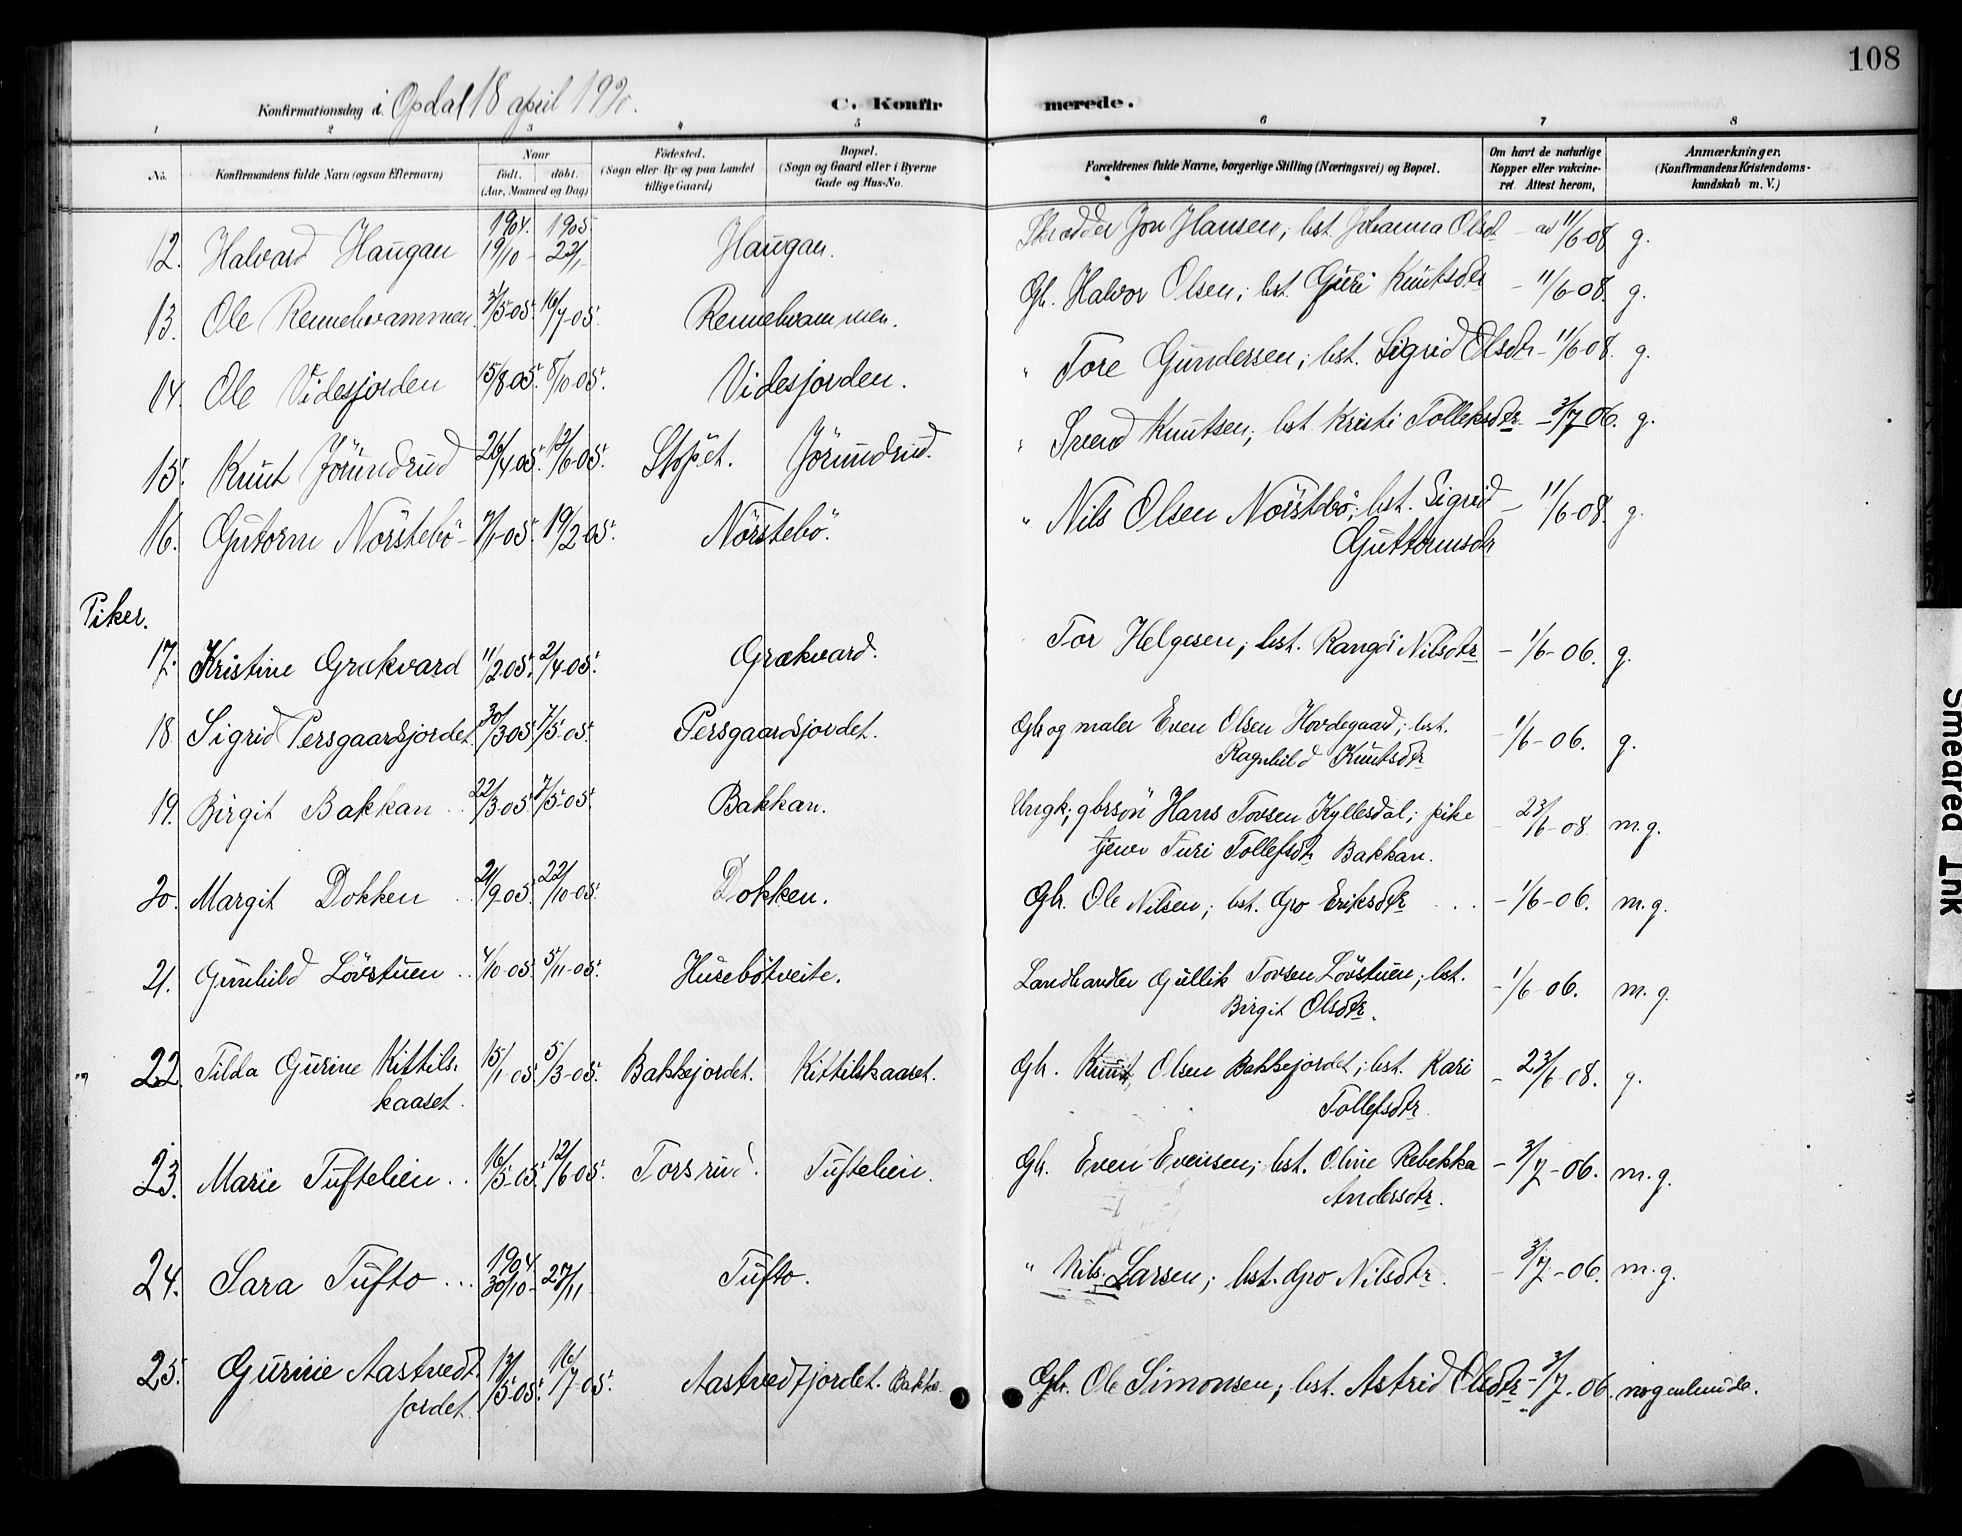 108
Konfirmationsdag i Opdal 18 april 1920.
C. Konfirmerede.
1 2 3 4 5 6 7 8
No.
Konfirmandens fulde Navn (ogsaa Efternavn)
Naar
født. døbt.
(Aar, Maaned og Dag)
Fødested.
(Sogn eller By og paa Landet
tillige Gaard)
Bopæl.
(Sogn og Gaard eller i Byerne
Gade og Hus-No.
Forældrenes fulde Navne, borgerlige Stilling (Næringsvei) og Bopæl.
Om havt de naturlige
Kopper eller vakcine-
ret. Attest herom,
Anmærkninger.
(Konfirmandens Kristendoms-
kundskab m. V.)
1904. 1905
12. Halvard Haugan 19/10 - 22/1- Haugan. Skrædder Jon Hansen; hst. Johanna Olsdt - 11/6-08 g.
13. Ole Rennehvammen 3/5-05. 16/7-05. Rennehvammen. Gbr. Halvor Olsen; hst. Guri Knutsdtr - 11/6-08. g.
14. Ole Videsjorden 15/8 05. 8/10-05. Videsjorden. " Tore Gundersen; hst. Sigrid Olsdtr - 11/6-08. g.
15. Knut Jörundrud 26/4 05. 12/6-05. Jörundrud. " Svend Knutsen; hst Kristi Tollefsdtr - 3/7 06. g.
16. Gutorm Nörstebö 7/1-05. 19/2 05. Nörstebö. " Nils Olsen Nörstebö; hst. Sigrid - 11/6-08. g.
Guttormsdtr
Piker.
17. Kristine Grækvard 11/2 05. 2/4-05. Grækvard. Tor Helgesen; hst. Rangdi Nilsdtr - 1/6-06. g.
18. Sigrid Persgaardsjordet 30/3 05. 7/5-05. Persgaardsjordet. Gbr og maler Even Olsen Hovdegaard; hst. - 1/6-06. g.
Ragnhild Knutsdtr
19. Birgit Bakkan 22/3 05. 7/5-05. Bakkan. Ungk; gbrsön Hans Torsen Kyllesdal; pike - 23/6-08 m.g.
tjener Turi Tollefsdtr Bakkan.
20. Margit Dokken 21/9 05. 22/10-05. Dokken. Gbr. Ole Nilsen; hst. Gro Eriksdtr - 1/6-06. m.g.
21. Gunhild Lövstuen 4/10-05. 5/11-05. Husebötveite. Landhandler Gullik Torsen Lövstuen; hst. - 1/6-06. m. g.
Birgit Olsdtr.
22. Tilda Gurine Kittils- 15/1 05. 5/3-05. Bakkejordet. Kittilskaaset. Gbr. Knut Olsen Bakkejordet; hst. Kari - 23/6-08. g.
kaaset. Tollefsdtr
23. Marie Tuftelien 16/5-05. 12/6 05. Torsrud. Tuftelien. Gbr. Even Evensen; hst. Oline Rebekka - 3/7-06. m.g.
Andersdtr.
1904.
24. Sara Tufto 30/10- 27/11- Tufto. " Nils Larsen; hst. Gro Nilsdtr. - 3/7-06. m.g.
25. Gurine Aastvedt- 13/5-05. 16/7-05. Aastvedtjordet. Gbr. Ole Simonsen; hst. Astrid Olsdtr - 3/7-06. nogenlunde.
jordet
Smeared Ink